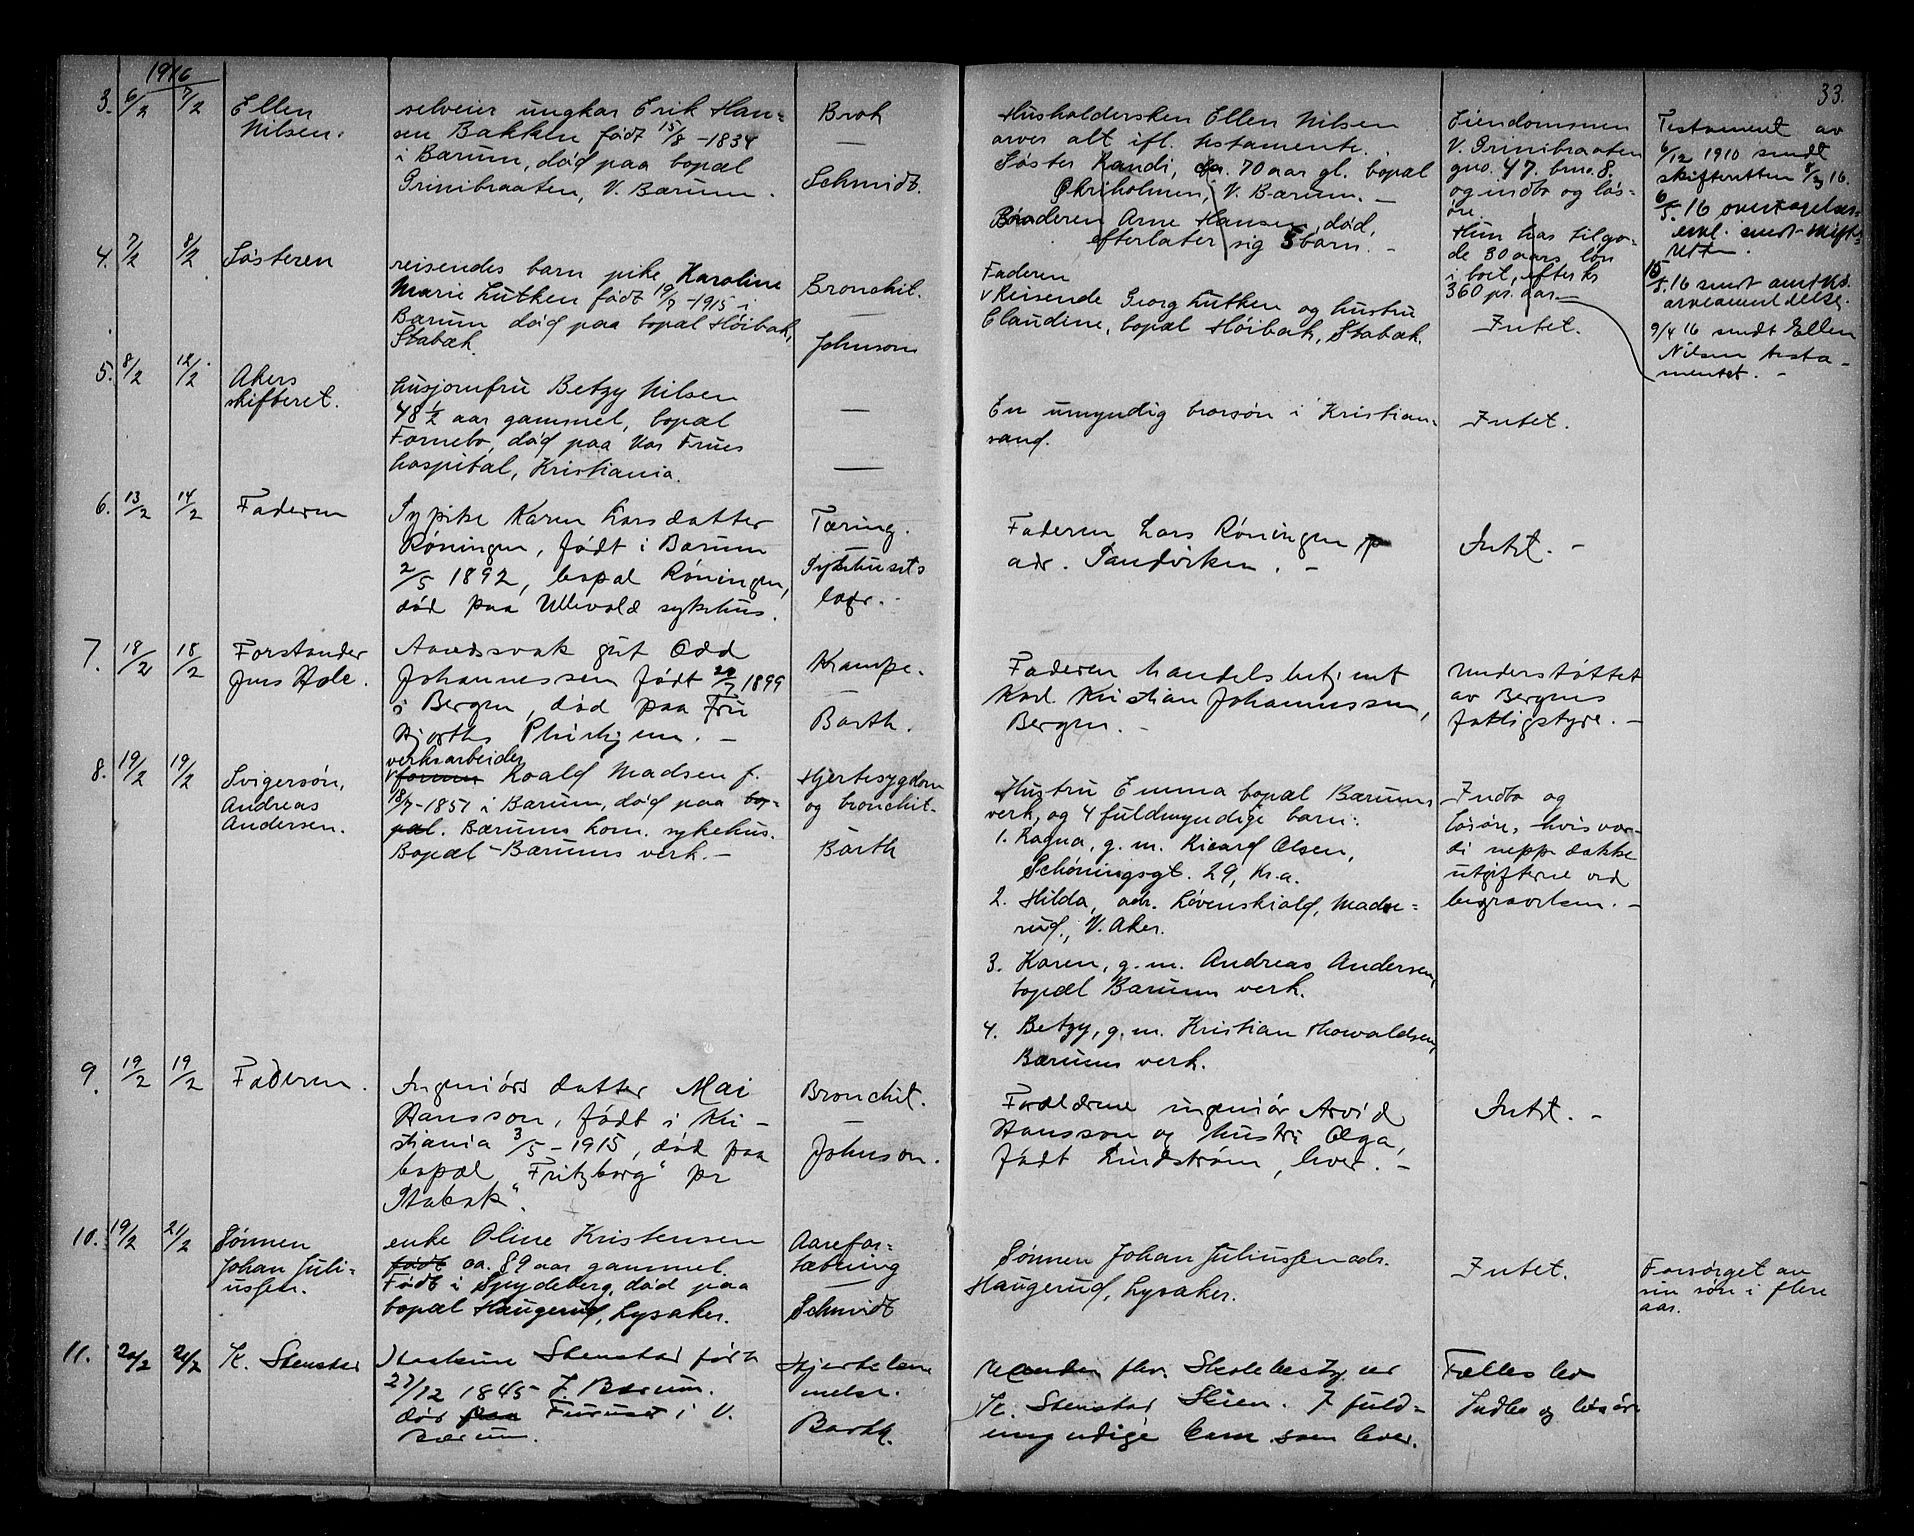 33.
1916
3. 6/2 7/2
Ellen
Nilsen.
selveier ungkar Erik Han-
sen Bakken født 15/8 - 1834
i Bærum, død paa bopæl
Grinibraaten, V. Bærum.
Brok
—
Schmidt.
Husholdersken Ellen Nilsen
arver alt ifl. testamente.
Søster Randi, ca. 70 aar gl. bopæl
Økriholmen, V. Bærum. -
Broderen Arne Hansen, død,
efterlater sig 5 barn. -
Eiendommen
V. Grinibraaten
gno. 47. brno. 8.
og indbo og løs-
øre.
Hun has tilgo-
de 30 aars løn
i boet, efter kr
360 pr. aar. -
Testament av
6/12 1910 sendt
skifteretten 8/3 16.
6/5. 16 overtagelses-
erkl. sendt skifte-
retten.
15/5. 16 sendt amtets
arveanmeldelse.
9/4 16 sendt Ellen
Nilsen testa-
mentet. -
4. 7/2 8/2
Søsteren
reisendes barn pike Karoline
Marie Lutken født 19/7 - 1915 i
Bærum død paa bopæl Høibak,
Stabæk.
Bronchit.
—
Johnson
Faderen
Reisende Georg Lutken og hustru
Claudine, bopæl Høibak, Stabæk.
Intet.
5. 8/2 12/2
Akers
skifteret.
husjomfru Betzy Nilsen
48 1/2 aar gammel, bopæl
Fornebo, død paa Vor Frues
hospital, Kristiania.
—
—
En umyndig brorsøn i Kristian-
sand.
Intet.
6. 13/2 14/2
Faderen
Sypike Karen Larsdatter
Røningen, født i Bærum
2/5 1892, bopæl Røningen,
død paa Ullevold sykehus.
Tæring.
Sykehusets
læge.
Faderen Lars Røningen
adr. Sandviken. -
Intet. -
7. 18/2 18/2
Forstander
Jens Hole.
Aandssvak gut Odd
Johannessen født 20/7 1899
i Bergen, død paa Fru
Hjorths Pleiehjem. -
Krampe.
—
Barth.
Faderen handelsbetjent
Karl Kristian Johannessen,
Bergen. -
Understøttet
av Bergens
fattigstyre. -
8. 19/2 19/2
Svigersøn,
Andreas
Andersen.
verksarbeider
Roald Madsen f.
18/7 - 1851 i Bærum, død paa bo-
pæl. Bærums kom. sykehus.
Bopæl - Bærums verk. -
Hjertesygdom
og bronchit.
Barth
Hustru Emma bopæl Bærums
verk, og 4 fuldmyndige barn:
1. Ragna, g. m. Ricard Olsen,
Schøningsgt. 29, Kr.a.
2. Hilda, adr. Løvenskiold, Madse-
rud, V. Aker.
3. Karen, g. m. Andreas Andersen,
bopæl Bærums verk.
4. Betzy, g. m. Kristian Thorvaldsen,
Bærums verk.
Indbo og
løsøre, hvis vær-
di neppe dække
utgifterne ved
begravelsen. -
9. 19/2 19/2
Faderen.
Ingeniørs datter Mai
Hansson, født i Kri-
stiania 3/5 - 1915, død paa
bopæl "Fritzborg" pr
Stabæk.
Bronchit.
—
Johnson.
Forældrene ingeniør Arvid
Hansson og hustru Olga,
født Lindstrøm, lever. -
Intet. -
10. 19/2 21/2
Sønnen
Johan Juli-
ussen.
enke Oline Kristensen
født ca. 89 aar gammel.
Født i Spydeberg, død paa
bopæl Haugerud, Lysaker.
Aarefor-
kalkning
—
Schmidt
Sønnen Johan Juliussen adr.
Haugerud, Lysaker.
Intet.
Forsørget av
sin søn i flere
aar.
11. 20/2 21/2
K. Stenstad
Stenstad født
27/12 1845 i Bærum.
død paa Furuset i V.
Bærum.
Hjertelam
melse.
Barth.
fhv. Skolebestyrer
K. Stenstad Skien. 7 fuld-
myndige barn som lever.
Fælles bo
Indbo og løsøre